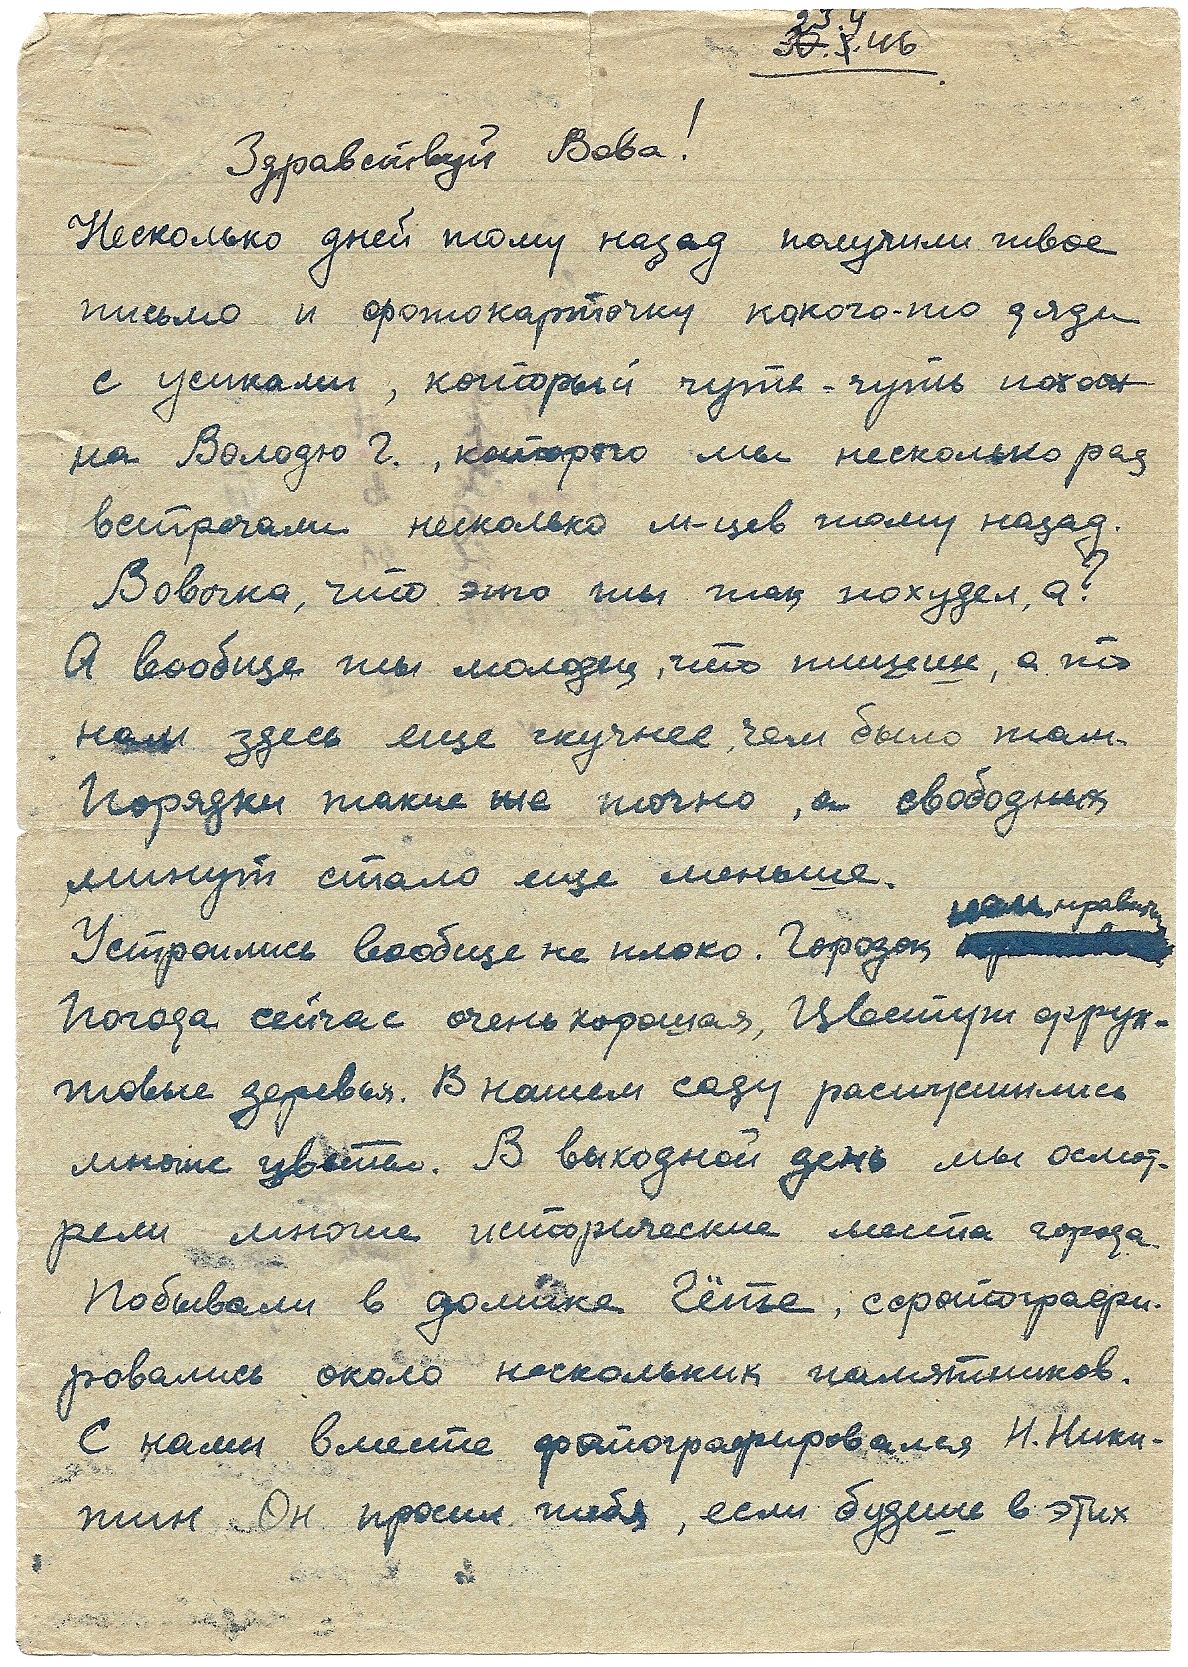 23.4
30.X.46
Здравствуй Вова!
Несколько дней тому назад получили твое
письмо и фотокарточку какого-то дяди
с усиками, который чуть-чуть похож
на Володю Г., которого мы несколько раз
встречали несколько м-цев тому назад.
Вовочка, что это ты так похудел, а?
А вообще ты молодец, что пишеш, а то
нам здесь еще скучнее, чем было там.
Порядки такие же точно, а свободных
минут стало еще меньше.
Устроились вообще не плохо. Городок нам нравится
Погода сейчас очень хорошая, Цветут фрук-
товые деревья. В нашем саду распустились
многие цветы. В выходной день мы осмот-
рели многие исторические места города.
Побывали в домике Гёте, сфотографи-
ровались около нескольких памятников.
С нами вместе фотографировался Н. Ники-
тин Он просил тебя, если будеше в этих